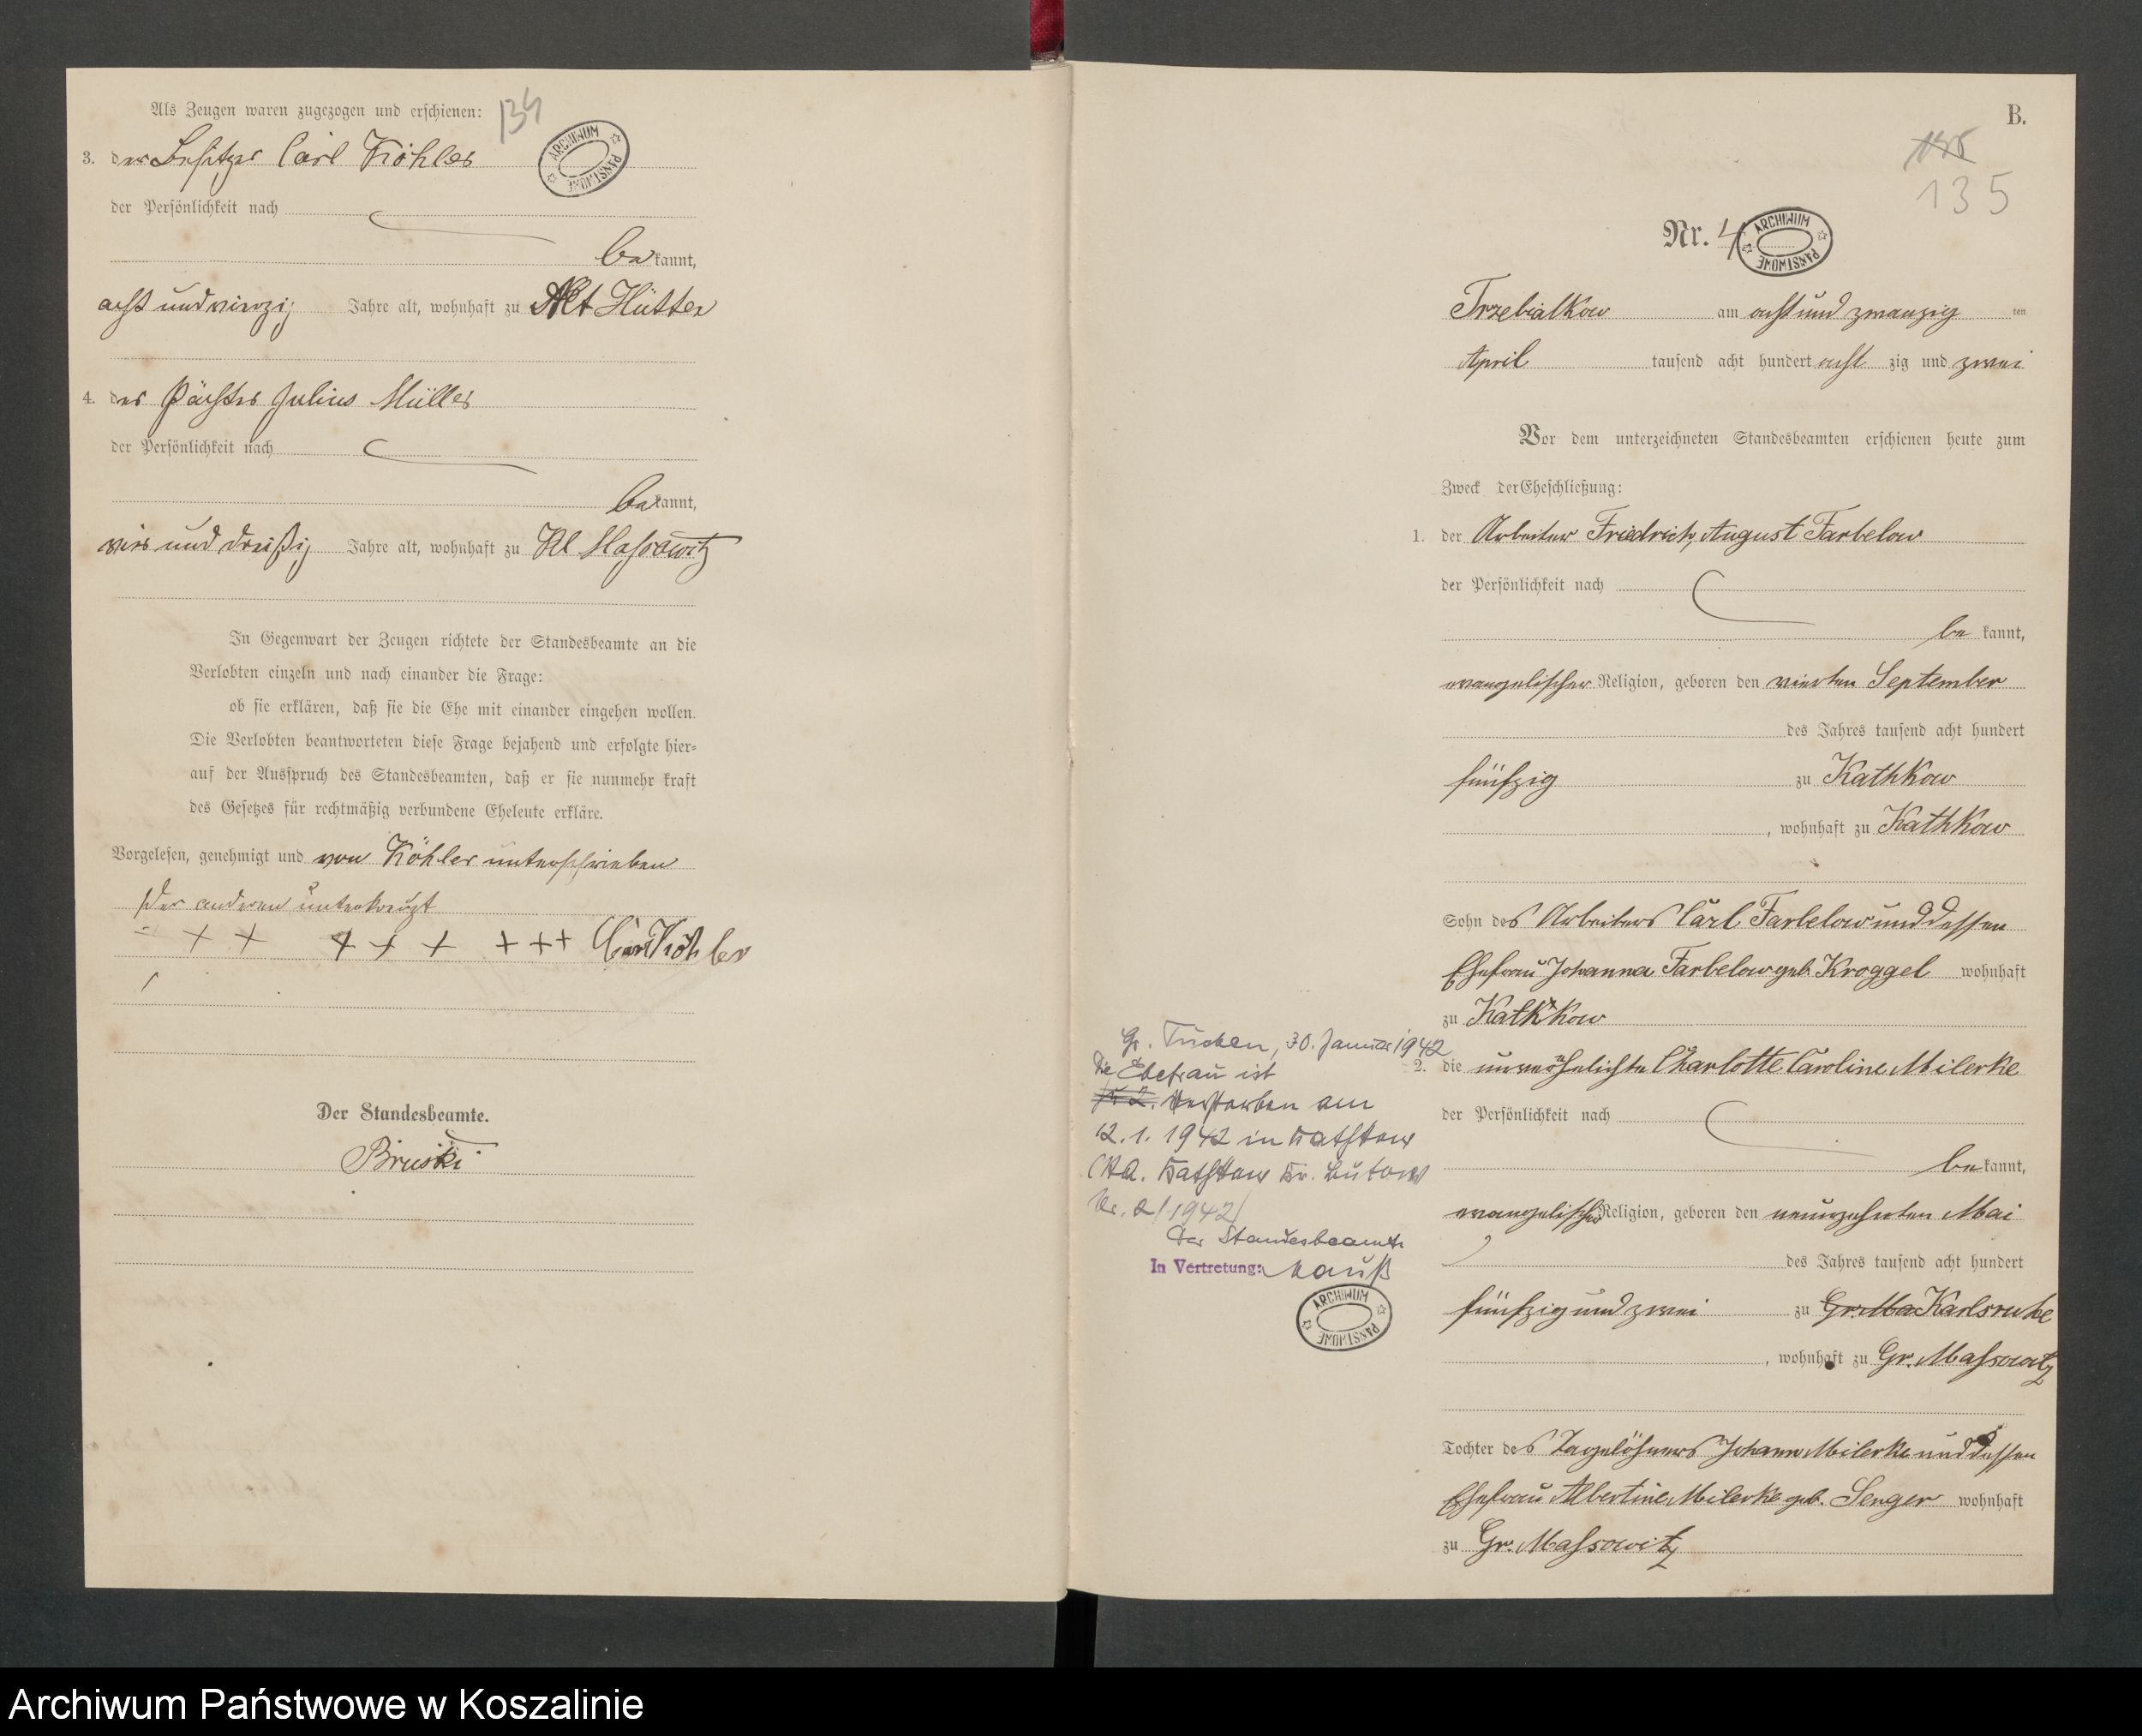 134
Als Zeugen waren zugezogen und erschienen:
3. der Besitzer Carl Köhler
der Persönlichkeit nach
bekannt,
acht und vierzig Jahre alt, wohnhaft zu Alt Hütten
4. der Pächter Julius Müller
der Persönlichkeit nach
bekannt,
vier und dreißig Jahre alt, wohnhaft zu Kl Massowitz
In Gegenwart der Zeugen richtete der Standesbeamte an die
Verlobten einzeln und nach einander die Frage:
ob sie erklären, daß sie die Ehe mit einander eingehen wollen.
Die Verlobten beantworteten diese Frage bejahend und erfolgte hier=
auf der Ausspruch des Standesbeamten, daß er sie nunmehr kraft
des Gesetzes für rechtmäßig verbundene Eheleute erkläre.
Vorgelesen, genehmigt und von Köhler unterschrieben
der anderen unterkreuzt
+ + + + + + + + Carl Köhler
Der Standesbeamte.
Bruski
ARCHIWUM PAŃSTWOWE
B.
135
Nr. 4
ARCHIWUM PAŃSTWOWE
Trzebiatkow am acht und zwanzig ten
April tausend acht hundert acht zig und zwei
Vor dem unterzeichneten Standesbeamten erschienen heute zum
Zweck der Eheschließung:
1. der Arbeiter Friedrich, August Farbelow
der Persönlichkeit nach
be kannt,
evangelischer Religion, geboren den vierten September
des Jahres tausend acht hundert
fünfzig zu Kathkow
, wohnhaft zu Kathkow
Sohn des Arbeiters Carl Farbelow und dessen
Ehefrau Johanna Farbelow geb. Kroggel wohnhaft
zu Kathkow
2. die unverehelichte Charlotte Caroline Milerke
der Persönlichkeit nach
bekannt,
evangelischer Religion, geboren den neunzehnten Mai
des Jahres tausend acht hundert
fünfzig und zwei zu Gr. Ma Karlsruhe
, wohnhaft zu Gr. Massowitz
Tochter des Tagelöhners Johann Milerke und dessen
Ehefrau Albertine Milerke geb. Senger wohnhaft
zu Gr. Massowitz
Gr. Tuchen, 30. Januar 1942
Die Ehefrau ist
zu 2. verstorben am
12. 1. 1942 in Kathkow
(StA. Kathkow Kr. Bütow
Nr. 2/1942)
Der Standesbeamte
In Vertretung: Kauß
ARCHIWUM PAŃSTWOWE
Archiwum Państwowe w Koszalinie